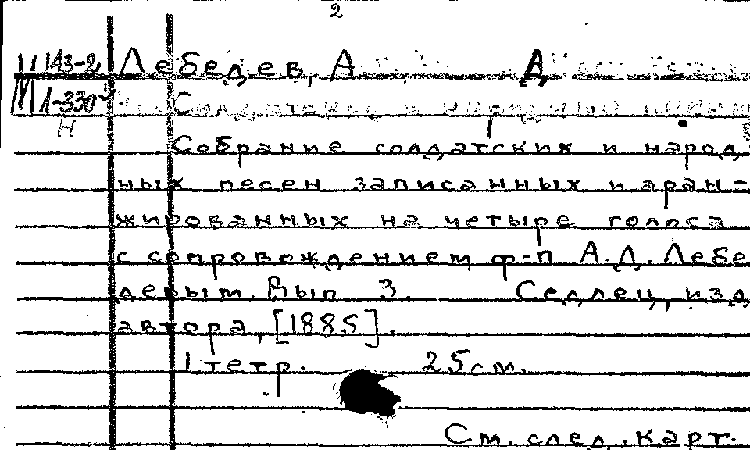 2
М 143-2 Лебедев, А. Д.
М 1-330
н
Собрание солдатских и народ
ных песен записанных и аран-
жированных на четыре голоса
с сопровождением ф-п А.Д. Лебе
девым. Вып 3. Седлец, изд
автора, [1885].
1 тетр. 25 см.
См. след. карт.